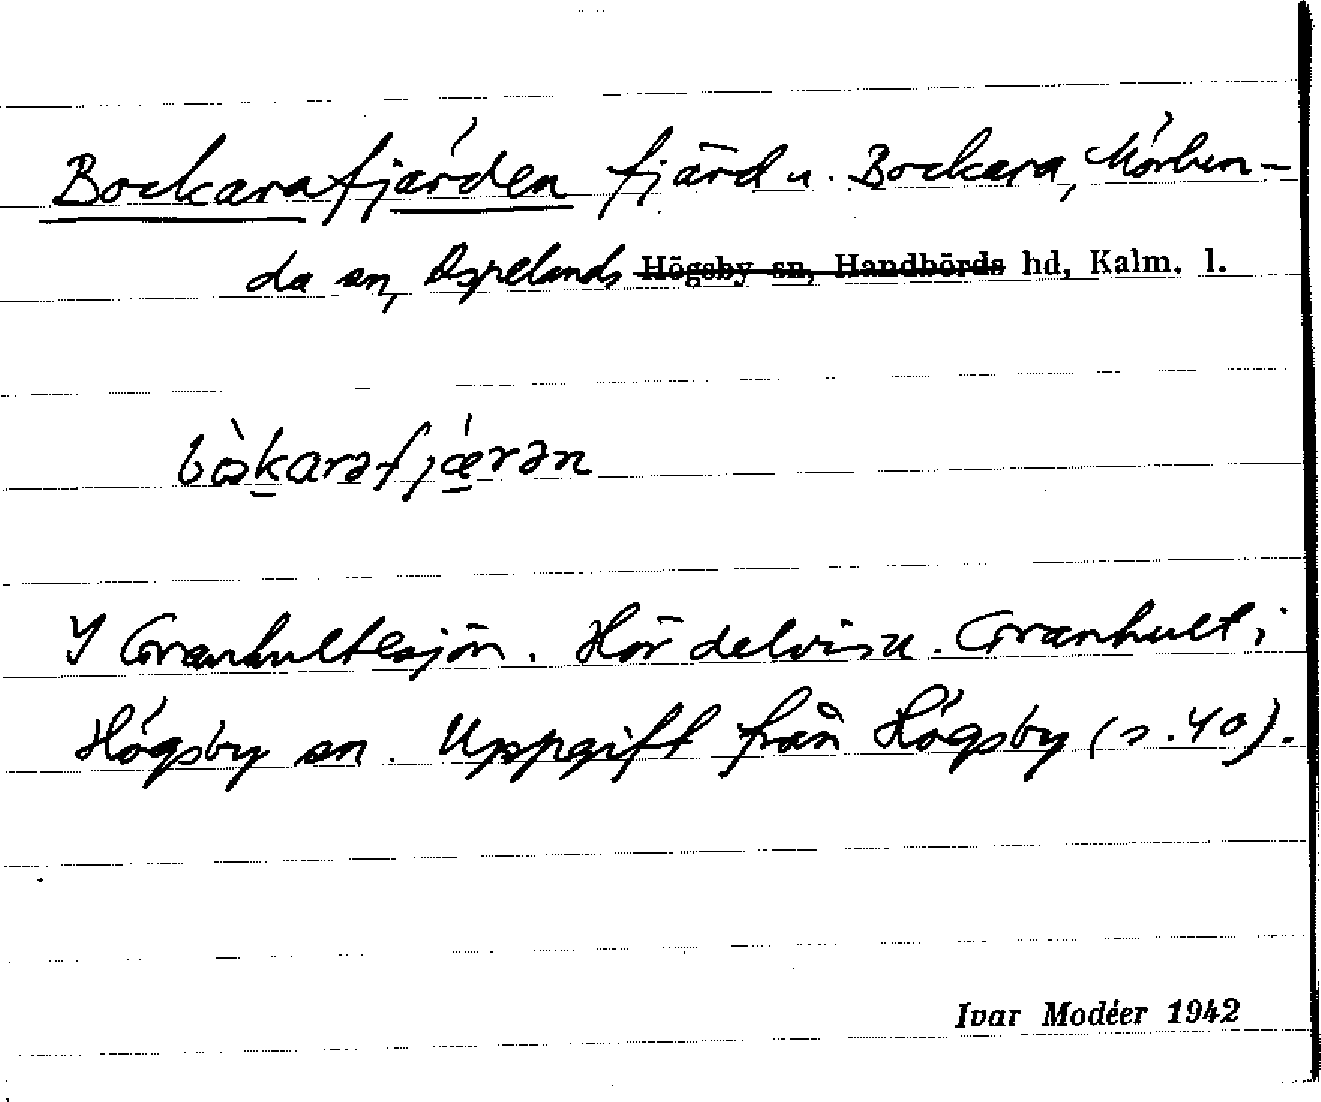 Bockarafjärden fjärd u. Bockara, Mörlun-
da sn, Aspelands Högsby sn, Handbörds hd, Kalm. l.
bòkarəfjǽrən
I Granhultesjön. Hör delvis u. Granhult i
Högsby sn. Uppgift från Högsby (s. 40).
Ivar Modéer 1942